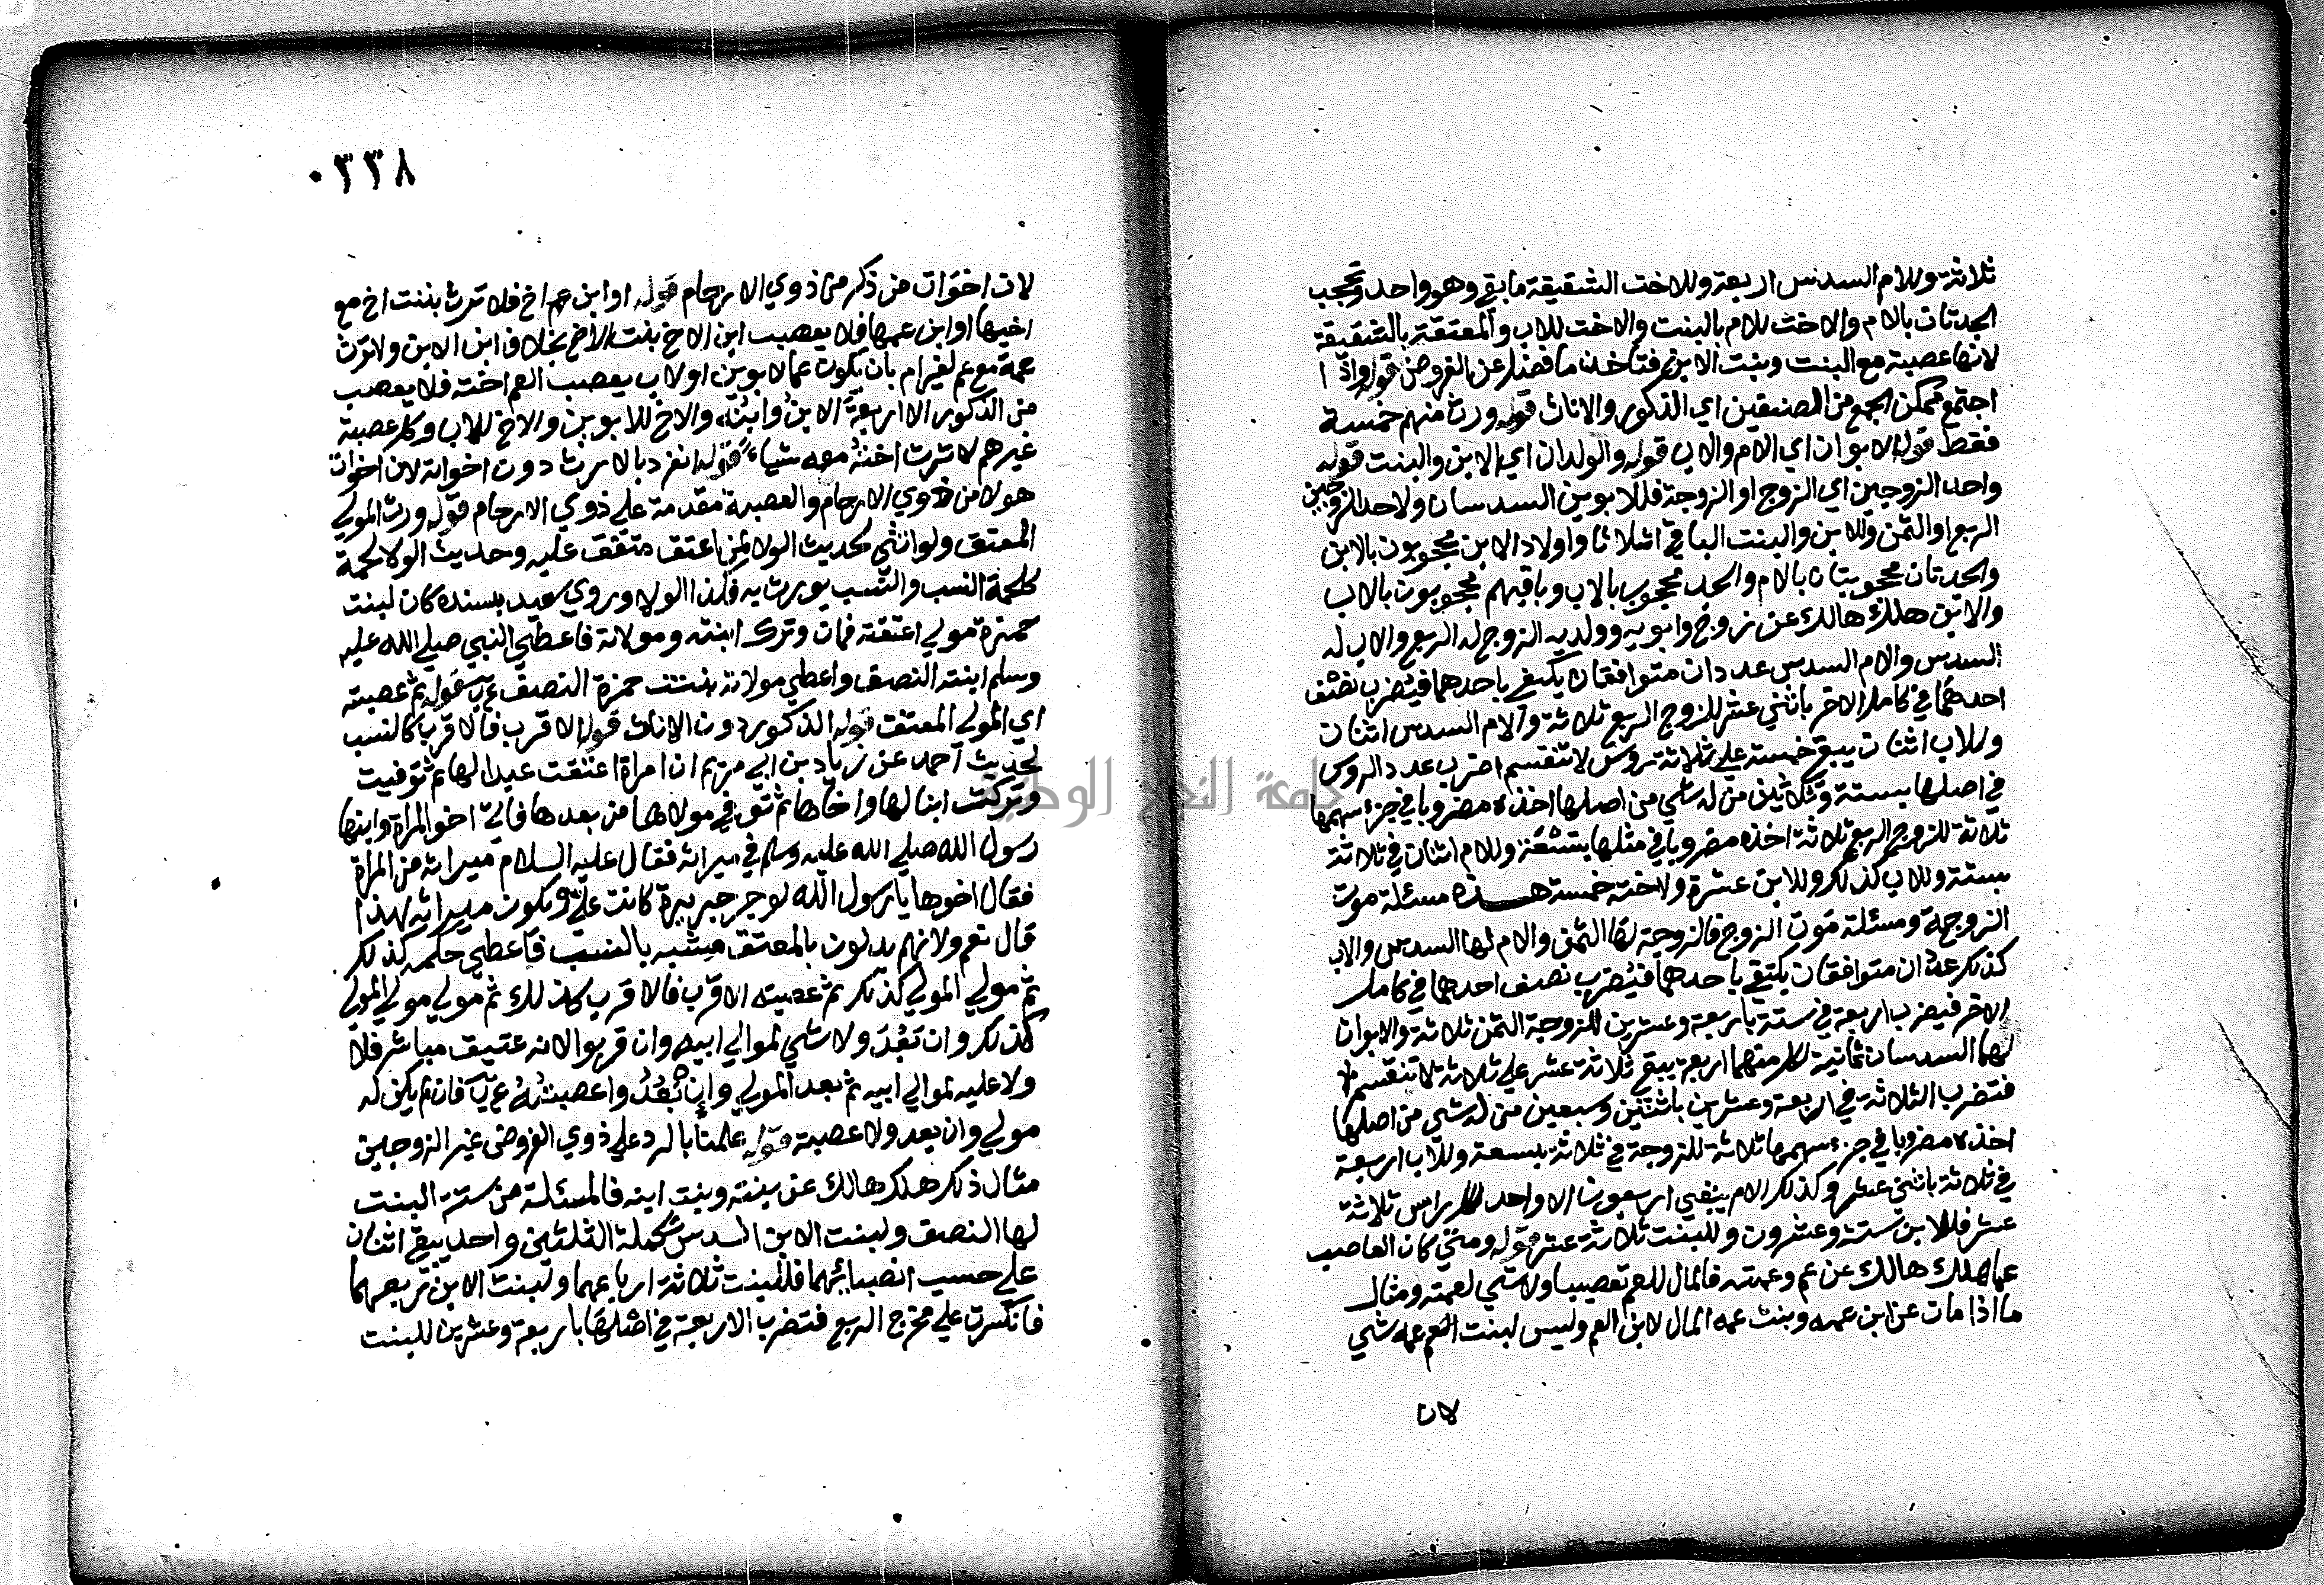 ثلاثة وللام السدس اربعة وللاخت الشقيقة ما بقي وهو واحد وتحجب
الجدتان بالام والاخت للام بالبنت والاخت للاب والمعتقة بالشقيقة
لانها عصبة مع البنت وبنت الابن فتاخذ ما فضل عن الفروض قوله واذا
اجتمع ممكن الجمع من الصنفين اي الذكور والاناث قوله ورث منهم خمسة
فقط قوله الابوان اي الام والاب قوله والولدان اي الابن والبنت قوله
واحد الزوجين اي الزوج او الزوجة فللابوين السدسان ولاحد الزوجين
الربع او الثمن وللابن والبنت الباقي اثلاثا واولاد الابن محجوبون بالابن
والجدتان محجوبتان بالام والجد محجوب بالاب وباقيهم محجوبون بالاب
والابن هلك هالك عن زوج وابويه وولديه الزوج له الربع والاب له
السدس والام السدس عددان متوافقان يكتفي باحدهما فيضرب نصف
احدهما في كامل الاخر باثني عشر للزوج الربع ثلاثة والام السدس اثنان
وللاب اثنان يبقي خمسة علي ثلاثة روس لا تنقسم اضرب عدد الروس
في اصلها بستة وثلاثين من له شي من اصلها اخذه مضروبا في جزء سهمها
ثلاثة للزوج الربع ثلاثة اخذه مضروبا في مثلها بتسعة وللام اثنان في ثلاثة
بستة وللاب كذلك وللابن عشرة ولاخته خمسة هذه مسئلة موت
الزوجة ومسئلة موت الزوج فالزوجة لها الثمن والام لها السدس والاب
كذلك عددان متوافقان يكتفي باحدهما فيضرب نصف احدهما في كامل
الاخر فيضرب اربعة في ستة باربعة وعشرين للزوجة الثمن ثلاثة والابوان
لهما السدسان ثمانية لكل منهما اربعة يبقي ثلاثة عشر علي ثلاثة لا تنقسم
فتضرب الثلاثة في اربعة وعشرين باثنين وسبعين من له شي من اصلها
اخذه مضروبا في جزء سهمها ثلاثة للزوجة في ثلاثة بتسعة وللاب اربعة
في ثلاثة باثني عشر وكذلك الام يبقي اربعون الا واحد لكل راس ثلاثة
عشر فللابن ستة وعشرون وللبنت ثلاثة عشر قوله ومتي كان العاصب
عما هلك هالك عن عم وعمته فالمال للعم تعصيبا ولا شي لعمته ومثال
ما اذا مات عن ابن عمه وبنت عمه المال لابن العم وليس لبنت العم عمه شي
لان
٠٣٣٨
لان اخوات من ذكر من ذوي الارحام قوله او ابن عم اخ فلا ترث بنت اخ مع
اخيها او ابن عمها فلا يعصب ابن الاخ بنت الاخ بخلاف ابن الابن ولا ترث
عمة مع عم لغير ام بان يكون عما لابوين او لاب يعصب العم اخته فلا يعصب
من الذكور الا اربعة الابن وابنه والاخ للابوين والاخ للاب وكل عصبة
غيرهم لا ترث اخته معه شيا قوله انفرد بالارث دون اخواته لان اخوات
هولا من ذوي الارحام والعصبة مقدمة علي ذوي الارحام قوله ورث المولي
المعتق ولو انثي لحديث الولا لمن اعتق متفق عليه وحديث الولا لحمة
كلحمة النسب والنسب يورث به فكذا الولا وروي سعيد بسنده كان لبنت
حمزة مولي اعتقته فمات وترك ابنته ومولاته فاعطي النبي صلي الله عليه
وسلم ابنته النصف واعطي مولاته بنت حمزة النصف قوله ثم عصبته
اي المولي المعتق قوله الذكور دون الاناث قوله الاقرب فالاقرب كالنسب
لحديث احمد عن زياد بن ابي مريم ان امراة اعتقت عبدا لها ثم توفيت
وتركت ابنا لها واخاها ثم توفي مولاها من بعدها فاتي اخو المراة وابنها
رسول الله صلي الله عليه وسلم في ميراثه فقال عليه السلام ميراثه من المراة
فقال اخوها يا رسول الله لو جر جريرة كانت علي ويكون ميراثه لهذا
قال نعم ولانهم يدلون بالمعتق مشبه بالنسب فاعطي حكمه كذلك
ثم مولي المولي كذلك ثم عصبته الاقرب فالاقرب كذلك ثم مولي مولي المولي
كذلك وان بعد ولا شي لموالي ابيه وان قربوا لانه عتيق مباشر فلا
ولا عليه لموالي ابيه ثم بعد المولي وان بعد واعصبته فان لم يكن له
مولي وان بعد ولا عصبة قوله علمنا بالرد علي ذوي الفروض غير الزوجين
مثال ذلك هلك هالك عن بنته وبنت ابنه فالمسئلة من ستة البنت
لها النصف ولبنت الابن السدس تكملة الثلثين واحد يبقي اثنان
علي حسب انصبائهما فللبنت ثلاثة ارباعهما ولبنت الابن ربعهما
فانكسرت علي مخرج الربع فتضرب الاربعة في اصلها باربعة وعشرين للبنت
جامعة النجاح الوطنية